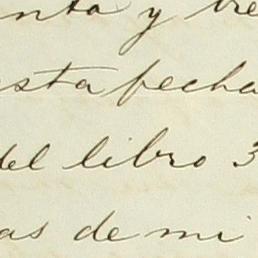 nta y tre
esta fecha
del libro 3
as de mi